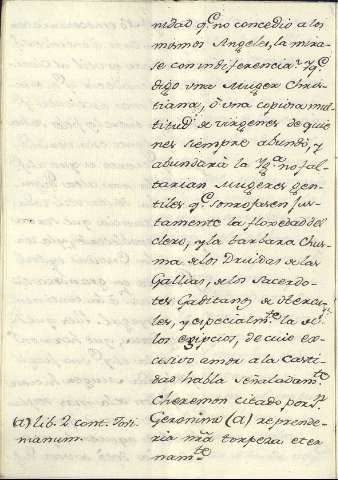 nidad q.e no concedió a los
mismos Angeles, la mira-
se con indiferencia? Y q.e
digo una Muger Chris-
tiana, ò una copiosa mul-
titud de virgenes de quie
nes siempre abundó, y
abundarà la Yg.a no fal-
tarian Mugeres gen-
tiles q.e sonrojasen jus-
tamente la floxedad del
clero, y la barbara chus-
ma de los Druidas de las
Gallias, de los Sacerdo-
tes Gaditanos de Hercu-
les, y especialm.te la de
los egipcios, de cuio ex-
cesivo amor a la casti-
dad habla señaladam.te
Cheremon citado por S.n
Geronimo (a) reprende-
ria nra torpeza eter-
nam.te
(a) lib. 2 cont. Jovi-
nianum.